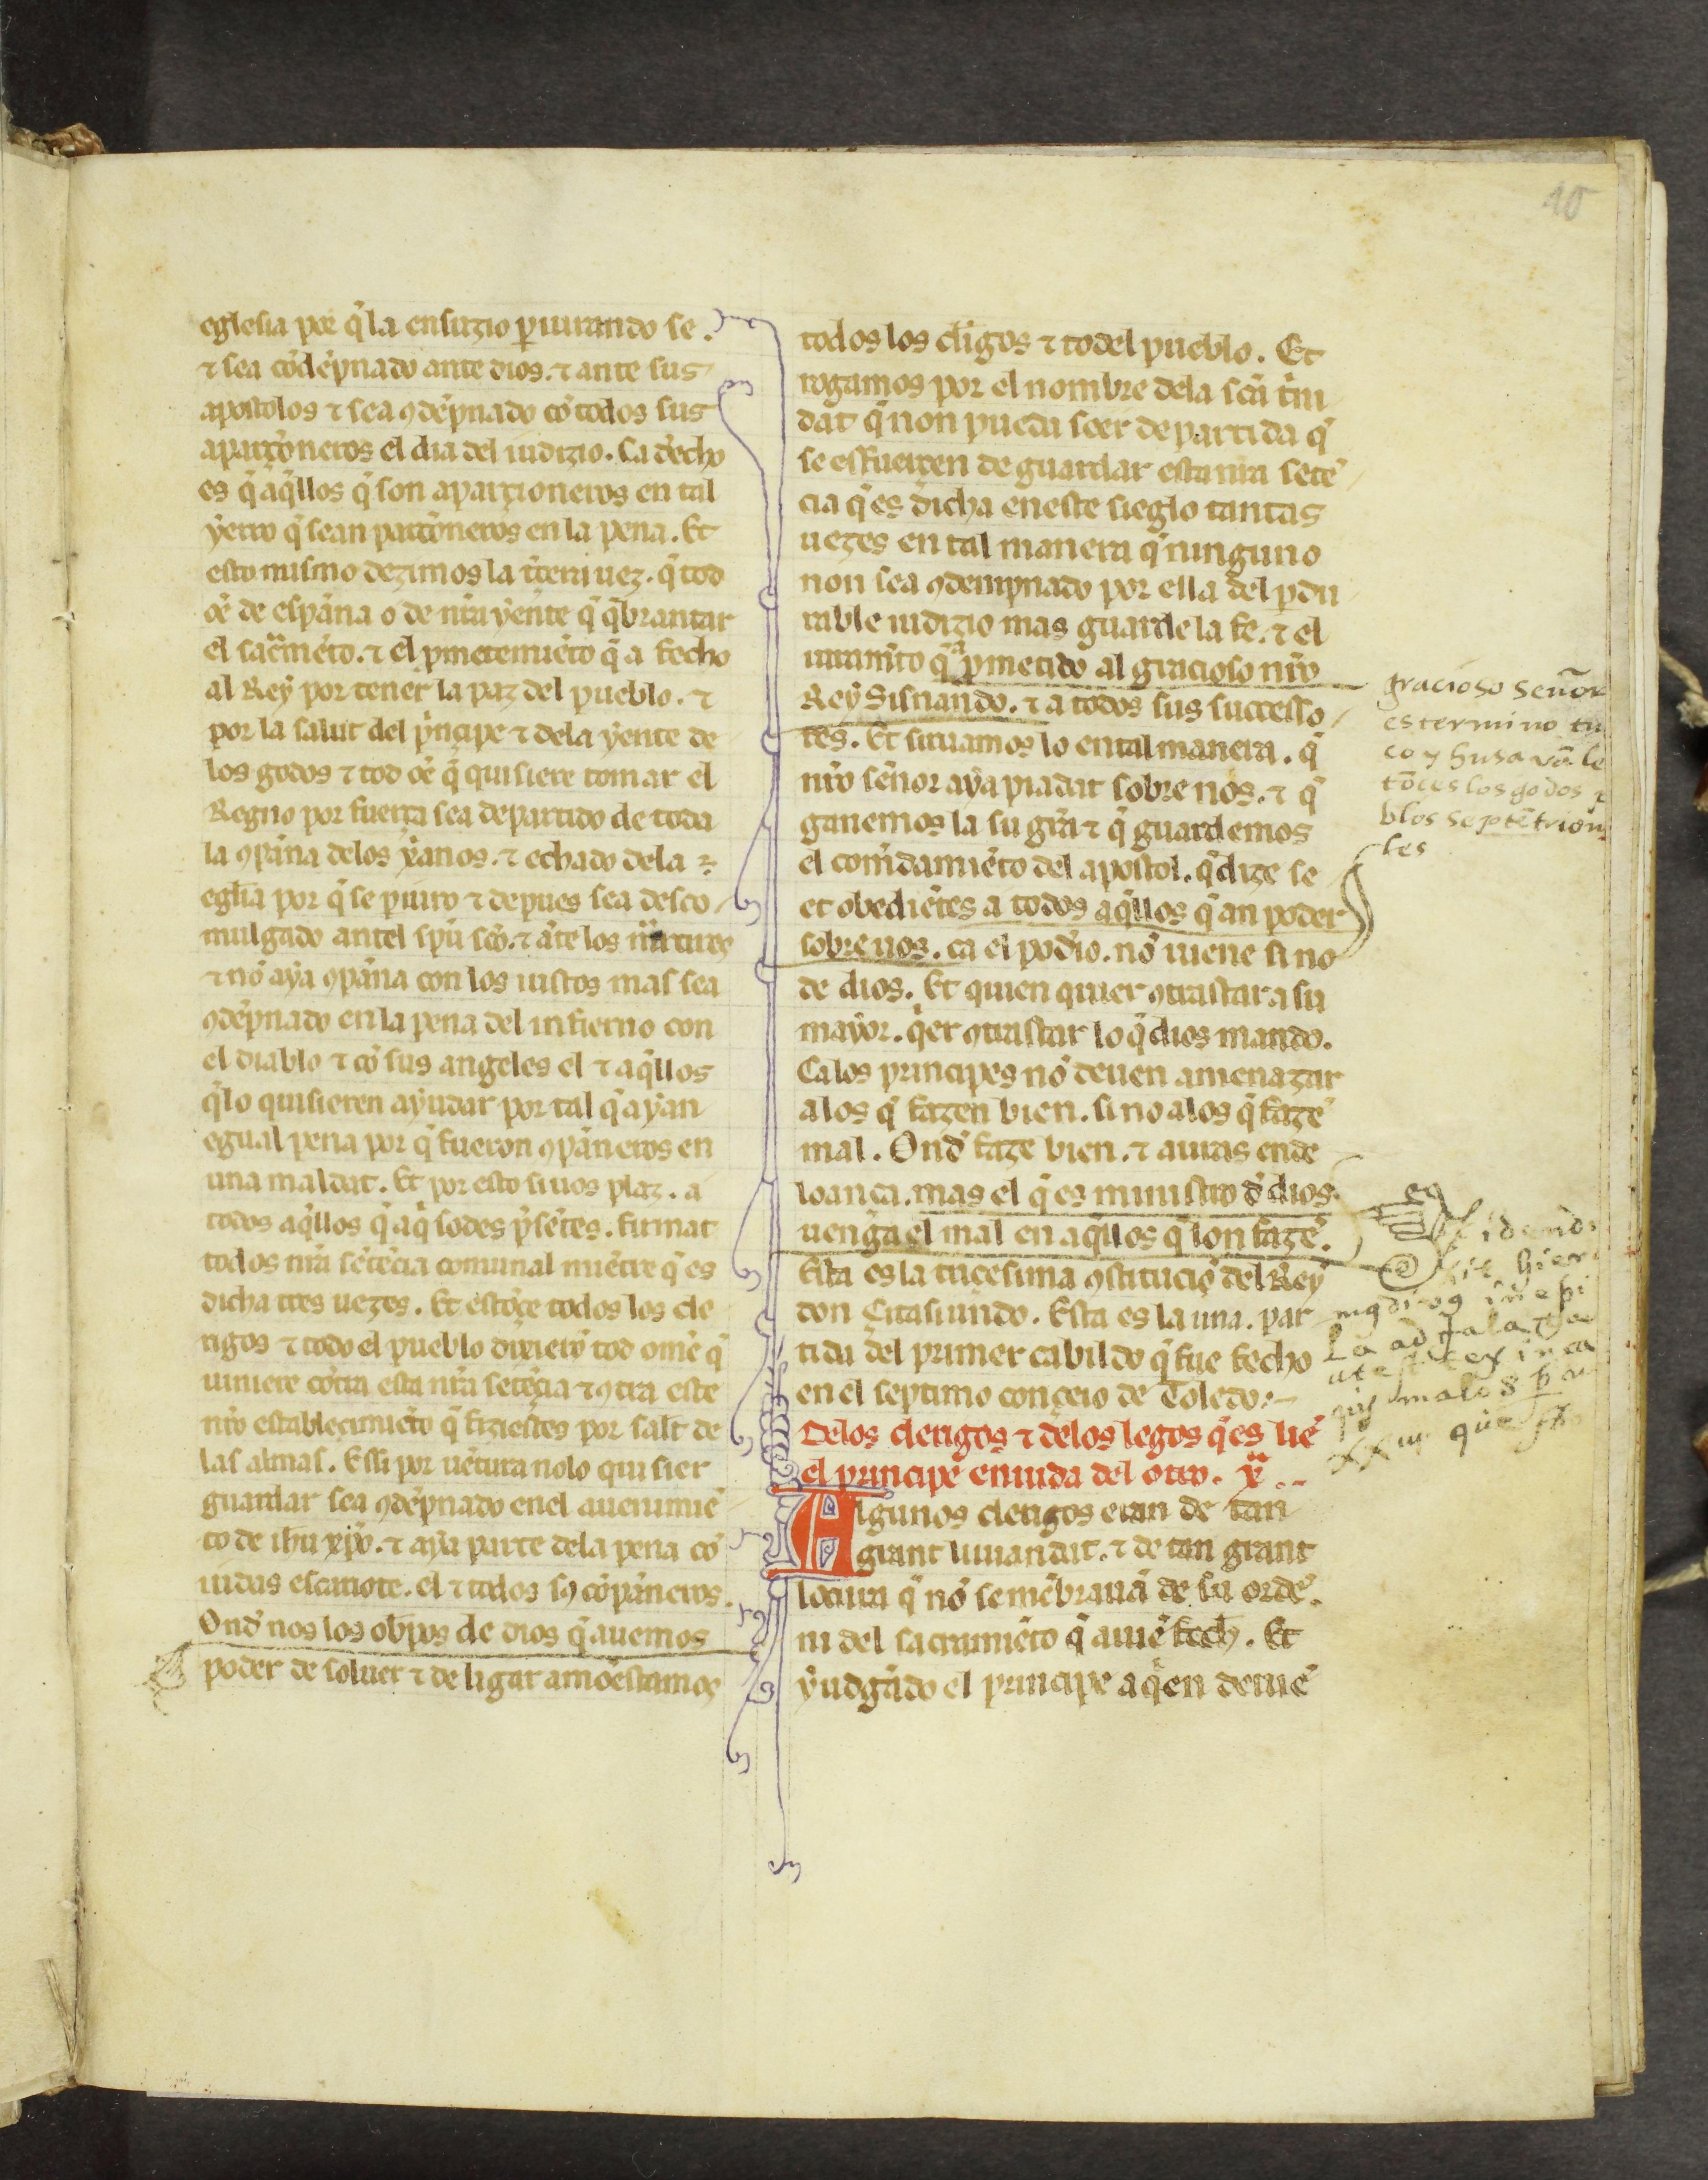 10
eglesia por q̃ la ensuzio periurando se.
⁊ sea cõdẽpnado ante dios. ⁊ ante sus
apostolos ⁊ sea ꝯdẽpnado cõ todos sus
aparçoneros el dia del iudizio. Ca derecho
es q̃ aq̃llos q̃ son aparçioneros en tal
yerro q̃ sean parçoneros en la pena. Et
esto mismo dezimos la tercera uez. q̃ tod
oẽ de españa o de nr̃a yente q̃ q̃brantar
el sacramẽto. ⁊ el ꝓmetemiẽto q̃ a fecho
al Rey por tener la paz del pueblo. ⁊
por la salut del prĩcipe ⁊ dela yente de
los godos ⁊ tod oẽ q̃ quisiere tomar el
Regno por fuerça sea departido de toda
la ꝯpãna delos xp̃anos. ⁊ echado dela
eglia por q̃ se periuro ⁊ depues sea desco
mulgado antel spũ scõ. ⁊ ãte los martires
⁊ nõ aya ꝯpãna con los iustos mas sea
ꝯdẽpnado en la pena del infierno con
el diablo ⁊ cõ sus angeles el ⁊ aq̃llos
q̃ lo quisieren ayudar por tal q̃ ayan
egual pena por q̃ fueron ꝯpãneros en
una maldat. Et por esto si uos plaz. a
todos aq̃llos q̃ aq̃ sodes presẽtes. firmat
todos nr̃a sẽtẽcia comunal miẽtre q̃ es
dicha tres uezes. Et estõçe todos los cle
rigos ⁊ todo el pueblo dixierõ tod omẽ q̃
uiniere cõtra esta nr̃a setẽçia ⁊ ꝯtra este
nr̃o establecimiẽto q̃ fiziestes por salt de
las almas. E ssi por uẽtura nolo quisier
guardar sea ꝯdẽpnado enel auenimiẽ
to de ihũ xp̃o. ⁊ aya parte dela pena cõ
iudas escariote. el ⁊ todos sꝯ cõpãneros.
Onđ nos los obp̃os de dios q̃ auemos
poder de soluer ⁊ de ligar amoẽstamos
todos los cl̃igos ⁊ todel pueblo. Et
rogamos por el nombre dela scã trĩni
dat q̃ non pueda seer departida q̃
se esfuerçen de guardar esta nr̃a setẽ
cia q̃ es dicha eneste sieglo tantas
uezes en tal manera q̃ ninguno
non sea ꝯdempnado por ella del perdu
rable iudizio mas guarde la fe. ⁊ el
iuramẽto q̃ a ꝓmetido al gracioso nr̃o
Rey Sisnando. ⁊ a todos sus successo
res. Et siruamos lo en tal manera. q̃
nr̃o señor aya piadat sobre nos. ⁊ q̃
ganemos la su gr̃a ⁊ q̃ guardemos
el comãdamiẽto del apostol. q̃ dize se
et obediẽtes a todos aq̃llos q̃ an poder
sobre uos. ca el poderio. nõ uiene si no
de dios. Et quien quier ꝯtrastar a su
mayor. q̃er ꝯtrastar lo q̃ dios mando.
Ca los principes nõ deuen amenazar
a los q̃ fazen bien. si no alos q̃ fazẽ
mal. Onđ faze bien. ⁊ auras ende
loança. mas el q̃ es ministro đ dios.
uenga el mal en aq̃llos q̃ lon fazẽ.
Esta es la triçesima ꝯstituciõ del Rey
don Citasiundo. Esta es la una. par
tida del primer cabildo q̃ fue fecho
en el septimo conçeio de Toledo:-
Delos clerigos ⁊ delos legos q̃ es uẽ
el principe en uida del otro. xª
Algunos clerigos eran de tan
grant liuiandat. ⁊ de tan grant
locura q̃ nõ se mẽbrauã de su ordẽ.
ni del sacramiẽto q̃ auiẽ fech. Et
yudgãdo el principe a q̃en deuiẽ
gracioso señor
es termino tu
co y husavã le
tõces los godos p
blos septẽtrion
les